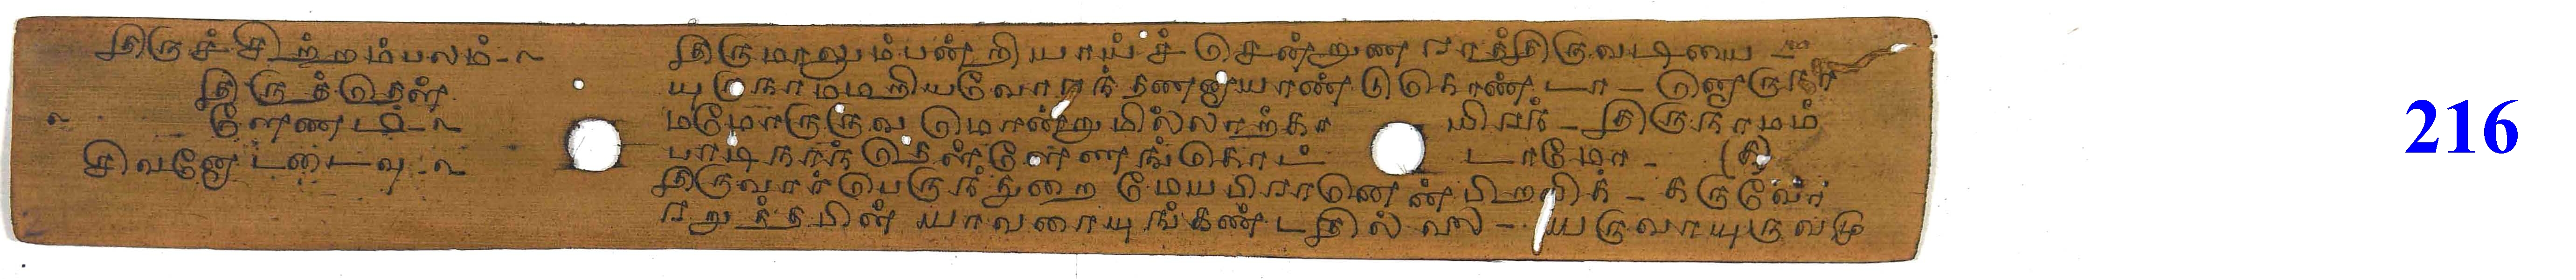 திருச்சிற்றம்பலம்-
திருத்தெள்
ளேணம்-
சிவனோடடைவு-
திருமாலும்பன்றியாய்ச் சென்றுணராத்திருவடியை -
யுருநாமறியவோரந்தணனாயாண்டுகொண்டா - னொருநா
மமோருருவ மொன்றுமில்லாற்கா யிரந் - திருநாமம்
பாடிநாந் தெள்ளேணங்கொட் டாமோ - (க)
திருவார்பெருந்துறை மேயபிரானென்பிறவிக் - கருவேர
றுத்தபின் யாவரையுங்கண்டதில்லை - யருவாயுருவமு
216